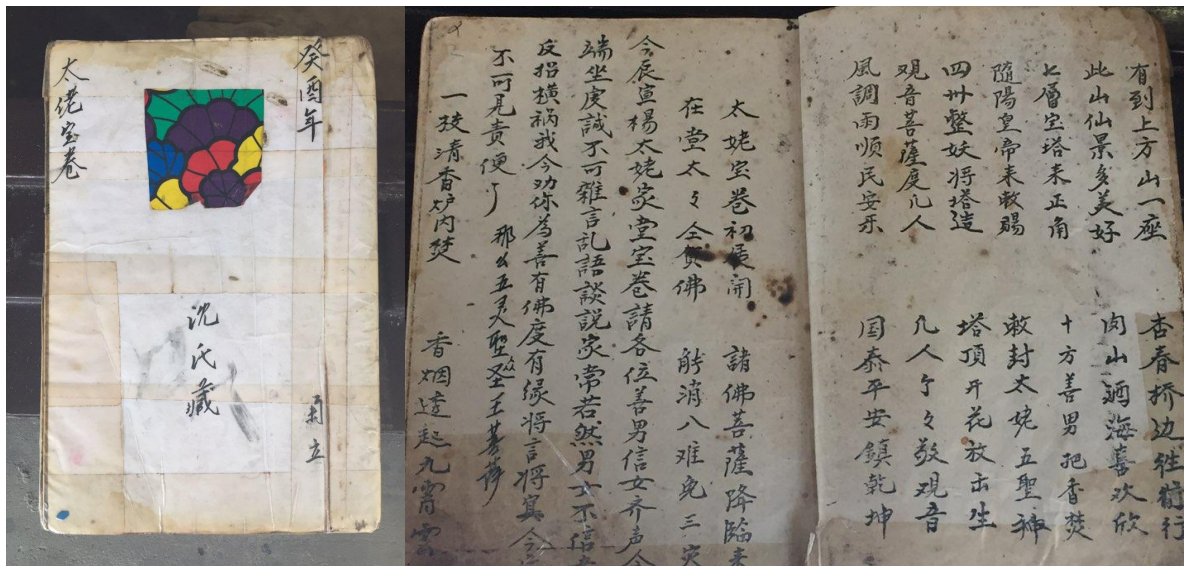 癸酉年
立
沈氏藏
太佬宝卷
有到上方山一座 杏春桥边往街行
此山仙景多美好 肉山酒海喜欢欣
七層宝塔来正角 十方善男把香焚
隨陽皇帝来敕赐 敕封太姥五聖神
四卅整妖将塔造 塔頂开花放出生
观音菩薩度凡人 凡人个々敬观音
風調雨順民安乐 国泰平安鎮乾坤
太姥宝卷初展開 諸佛菩薩降臨来
在堂太々仝賀佛 能消八难免三灾
今辰宣楊太姥家堂宝卷請各位善男信女齐声
端坐虔誠不可雜言乱語談説家常若然男女不信
反招横祸我今劝你為善有佛度有缘将言将真
不可見責便了 那么五灵聖圣王菩萨
一枝清香炉内焚 香烟遠起九霄雲